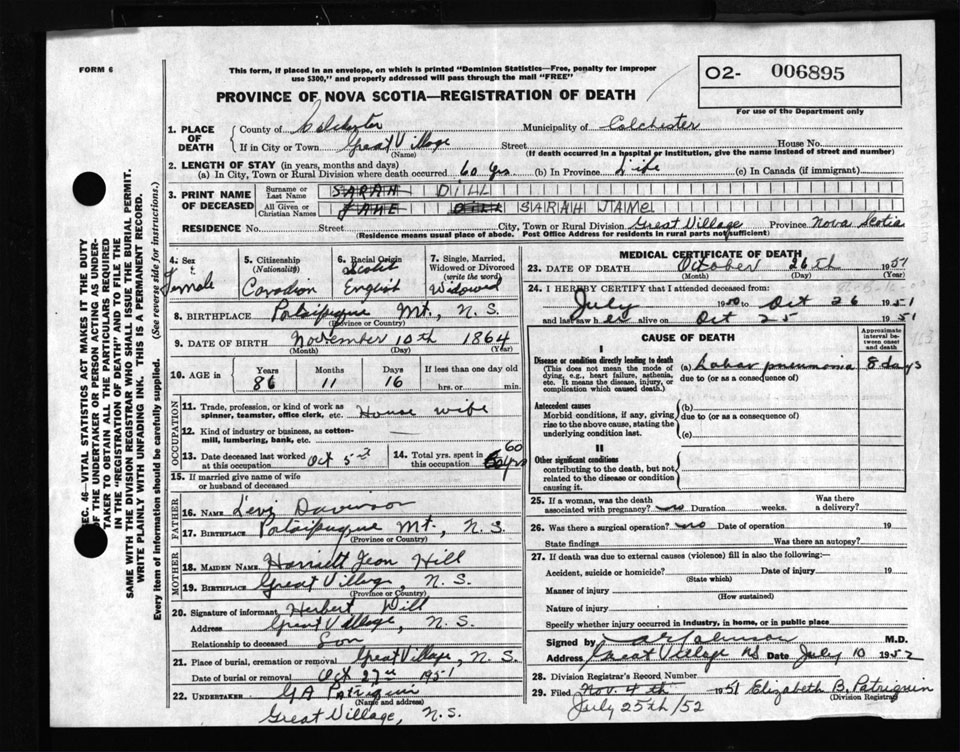 FORM 6
This form, if placed in an envelope, on which is printed "Dominion Statistics—Free, penalty for improper
use $300," and properly addressed will pass through the mail "FREE"
O2- 006895
For use of the Department only
PROVINCE OF NOVA SCOTIA—REGISTRATION OF DEATH
1. PLACE OF DEATH
County of Colchester Municipality of Colchester
If in City or Town Great Village Street House No.
(Name) (If death occurred in a hospital or institution, give the name instead of street and number)
2. LENGTH OF STAY (in years, months and days)
(a) In City, Town or Rural Division where death occurred 60 yrs (b) In Province Life (c) In Canada (if immigrant)
3. PRINT NAME OF DECEASED
Surname or Last Name SARAH DILL
All Given or Christian Names JANE DILL SARAH JANE
RESIDENCE No. Street City, Town or Rural Division Great Village Province Nova Scotia
(Residence means usual place of abode. Post Office Address for residents in rural parts not sufficient)
4. Sex Female
5. Citizenship (Nationality) Canadian
6. Racial Origin Scotch English
7. Single, Married, Widowed or Divorced (write the word) Widowed
8. BIRTHPLACE Mt, N.S.
(Province or Country)
9. DATE OF BIRTH November 10th 1864
(Month) (Day) (Year)
10. AGE in Years Months Days If less than one day old
86 11 16 hrs. or min.
OCCUPATION
11. Trade, profession, or kind of work as
spinner, teamster, office clerk, etc. House wife
12. Kind of industry or business, as cotton-
mill, lumbering, bank, etc.
13. Date deceased last worked
at this occupation Oct 5
14. Total yrs. spent in
this occupation 60
15. If married give name of wife
or husband of deceased
FATHER
16. NAME Levi Davison
17. BIRTHPLACE Mt, N.S.
(Province or Country)
MOTHER
18. MAIDEN NAME Jean Hill
19. BIRTHPLACE Great Village, N.S.
(Province or Country)
20. Signature of informant Herbert
Address Great Village, N.S.
Relationship to deceased Son
21. Place of burial, cremation or removal Great Village, N.S.
Date of burial or removal Oct 27th 1951
22. UNDERTAKER GA Patriquin
(Name and address)
Great Village, N.S.
MEDICAL CERTIFICATE OF DEATH
23. DATE OF DEATH October 26th 1951
(Month) (Day) (Year)
24. I HEREBY CERTIFY that I attended deceased from:
July 1950 to Oct 26 1951
and last saw her alive on Oct 25 1951
CAUSE OF DEATH
Approximate interval between onset and death
I
Disease or condition directly leading to death
(This does not mean the mode of
dying, e.g., heart failure, asthenia,
etc. It means the disease, injury, or
complication which caused death.)
(a) Lobar pneumonia 8 days
due to (or as a consequence of)
Antecedent causes
Morbid conditions, if any, giving
rise to the above cause, stating the
underlying condition last.
(b)
due to (or as a consequence of)
(c)
II
Other significant conditions
contributing to the death, but not
related to the disease or condition
causing it.
25. If a woman, was the death
associated with pregnancy? no Duration weeks. Was there a delivery?
26. Was there a surgical operation? no Date of operation 19
State findings Was there an autopsy?
27. If death was due to external causes (violence) fill in also the following:—
Accident, suicide or homicide? Date of injury 19
(State which)
Manner of injury
(How sustained)
Nature of injury
Specify whether injury occurred in industry, in home, or in public place
Signed by M.D.
Address Great Village NS Date July 10 1952
28. Division Registrar's Record Number
29. Filed Nov. 4th 1951 Elizabeth B. Patriquin
(Division Registrar)
July 25th/52
SEC. 46—VITAL STATISTICS ACT MAKES IT THE DUTY
OF THE UNDERTAKER OR PERSON ACTING AS UNDER-
TAKER TO OBTAIN ALL THE PARTICULARS REQUIRED
IN THE "REGISTRATION OF DEATH" AND TO FILE THE
SAME WITH THE DIVISION REGISTRAR WHO SHALL ISSUE THE BURIAL PERMIT.
WRITE PLAINLY WITH UNFADING INK. THIS IS A PERMANENT RECORD.
Every item of information should be carefully supplied. (See reverse side for instructions.)